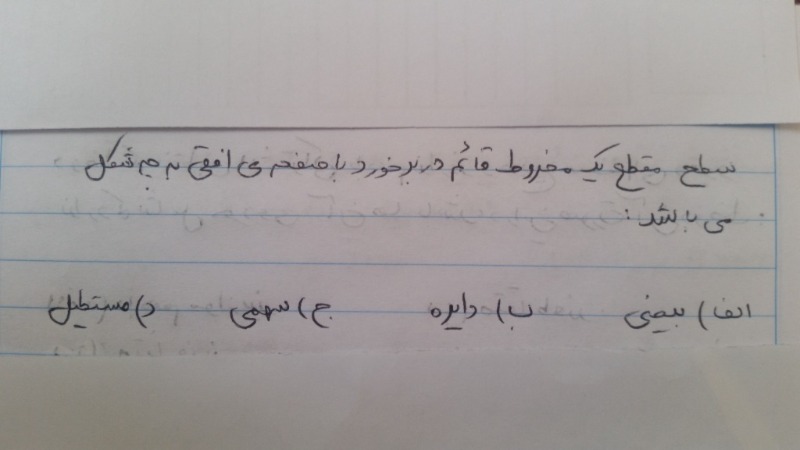 سطح مقطع یک مخروط قائم در برخورد با صفحه ی افقی به چه شکل
می باشد :
الف) بیضی ب) دایره ج) سهمی د) مستطیل